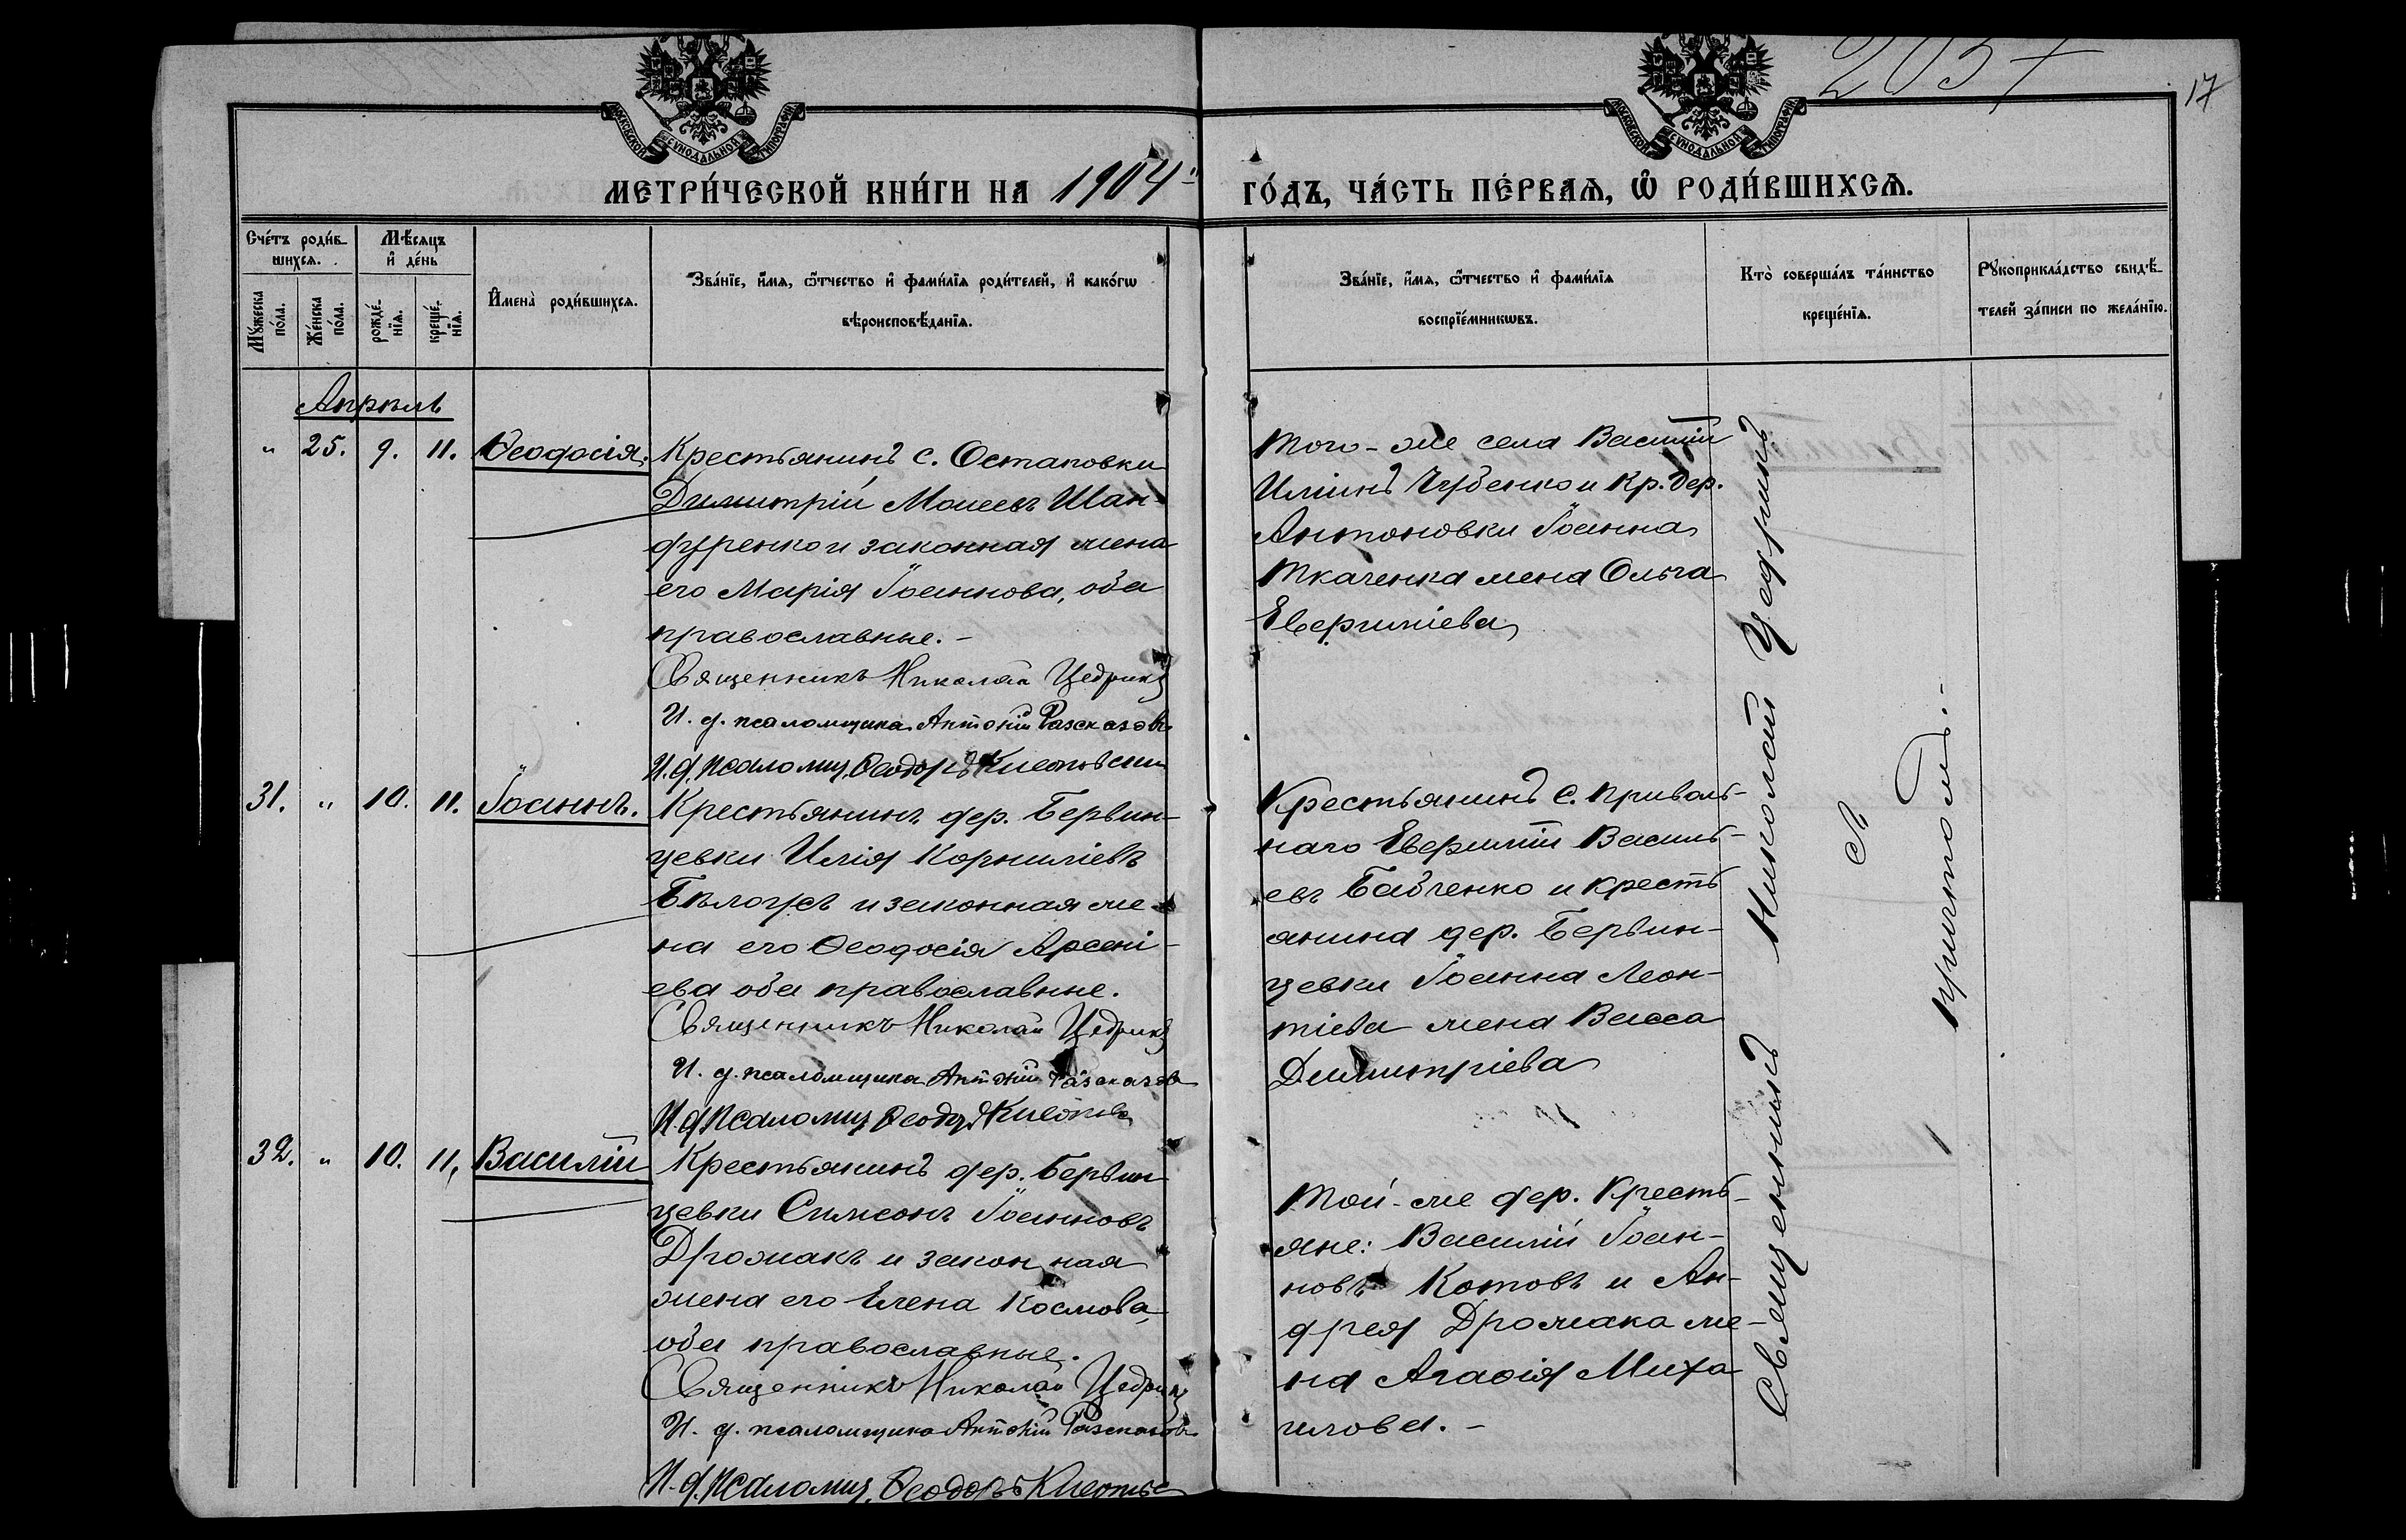 2057
17
МОСКОВСКОЙ СѴНОДАЛЬНОЙ ТИПОГРАФІИ
МОСКОВСКОЙ СѴНОДАЛЬНОЙ ТИПОГРАФІИ
МЕТРИ́ЧЕСКОЙ КНИ́ГИ НА 1904й ГО́ДЪ, ЧА́СТЬ ПЕ́РВАѦ, Ѡ҆ РОДИ́ВШИХСѦ.
Сче́тъ роди́в-
шихсѧ.
Мꙋ́жеска
по́ла.
Же́нска
по́ла.
Мѣ́сѧцъ
и҆ де́нь
рожде́-
нїѧ.
креще́-
нїѧ.
И҆мена̀ роди́вшихсѧ.
Зва́нїе, и҆́мѧ, ѻ҆́тчество и҆ фами́лїѧ роди́телей, и҆ како́гѡ
вѣроисповѣ́данїѧ.
Зва́нїе, и҆́мѧ, ѻ҆́тчество и҆ фами́лїѧ
воспрїе́мникѡвъ.
Кто̀ соверша́лъ та́инство
креще́нїѧ.
Рꙋкоприкла́дство свидѣ́-
телей за́писи по жела́нїю.
Апрѣль
" 25. 9. 11. Ѳеодосія.
Крестьянинъ с. Остаповки
Димитрій Моисеевъ Шан-
дуренко и законная жена
его Марія Іоаннова, оба
православные. -
Священникъ Николай Цедрикъ
И. д. псаломщика Антоній Разсказовъ
И. д. псаломщ. Ѳеодоръ
Того-же села Василій
Иліинъ Чубенко и кр. дер.
Антоновки Іоанна
Ткаченка жена Ольга
Евѳиміева
31. " 10. 11. Іоаннъ.
Крестьянинъ дер. Бервин-
цевки Илія Корниліевъ
Бѣлоусъ и законная же-
на его Ѳеодосія Арсені-
ева оба православные.
Священникъ Николай Цедрикъ
И. д. псаломщика Антоній Разсказовъ
И. д. псаломщ. Ѳеодоръ
Крестьянинъ с. Приволь-
наго Евѳимій Василь-
евъ Бабченко и кресть
янина дер. Бервин-
цевки Іоанна Леон-
тіева жена Васса
Димитріева
32. " 10. 11. Василій
Крестьянинъ дер. Бервин
цевки Симеонъ Іоанновъ
Дрожакъ и законная
жена его Елена Космова,
оба православные.
Священникъ Николай Цедрикъ
И. д. псаломщика Антоній Разсказовъ
И. д. псаломщ. Ѳеодоръ
Той-же дер. кресть-
яне: Василій Іоан-
новъ Котовъ и Ан-
дрея Дрожака же-
на Агаѳія Миха
илова. -
Священникъ Николай Цедрикъ
съ
причтомъ. -